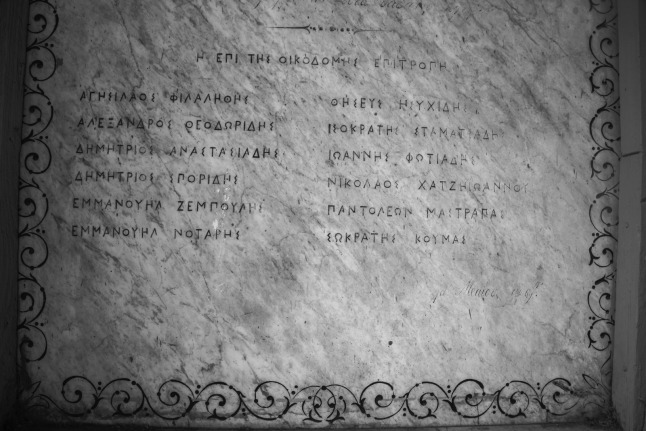 Η ΕΠΙ ΤΗΣ ΟΙΚΟΔΟΜΗΣ ΕΠΙΤΡΟΠΗ
ΑΓΗΣΙΛΑΟΣ ΦΙΛΑΛΗΘΗΣ
ΑΛΕΞΑΝΔΡΟΣ ΘΕΟΔΩΡΙΔΗΣ
ΔΗΜΗΤΡΙΟΣ ΑΝΑΣΤΑΣΙΑΔΗΣ
ΔΗΜΗΤΡΙΟΣ ΣΠΟΡΙΔΗΣ
ΕΜΜΑΝΟΥΗΛ ΖΕΜΠΟΥΛΗΣ
ΕΜΜΑΝΟΥΗΛ ΝΟΤΑΡΗΣ
ΘΗΣΕΥΣ ΗΣΥΧΙΔΗΣ
ΙΣΟΚΡΑΤΗΣ ΣΤΑΜΑΤΙΑΔΗΣ
ΙΩΑΝΝΗΣ ΦΩΤΙΑΔΗΣ
ΝΙΚΟΛΑΟΣ ΧΑΤΖΗΙΩΑΝΝΟΥ
ΠΑΝΤΟΛΕΩΝ ΜΑΣΤΡΑΠΑΣ
ΣΩΚΡΑΤΗΣ ΚΟΥΜΑΣ